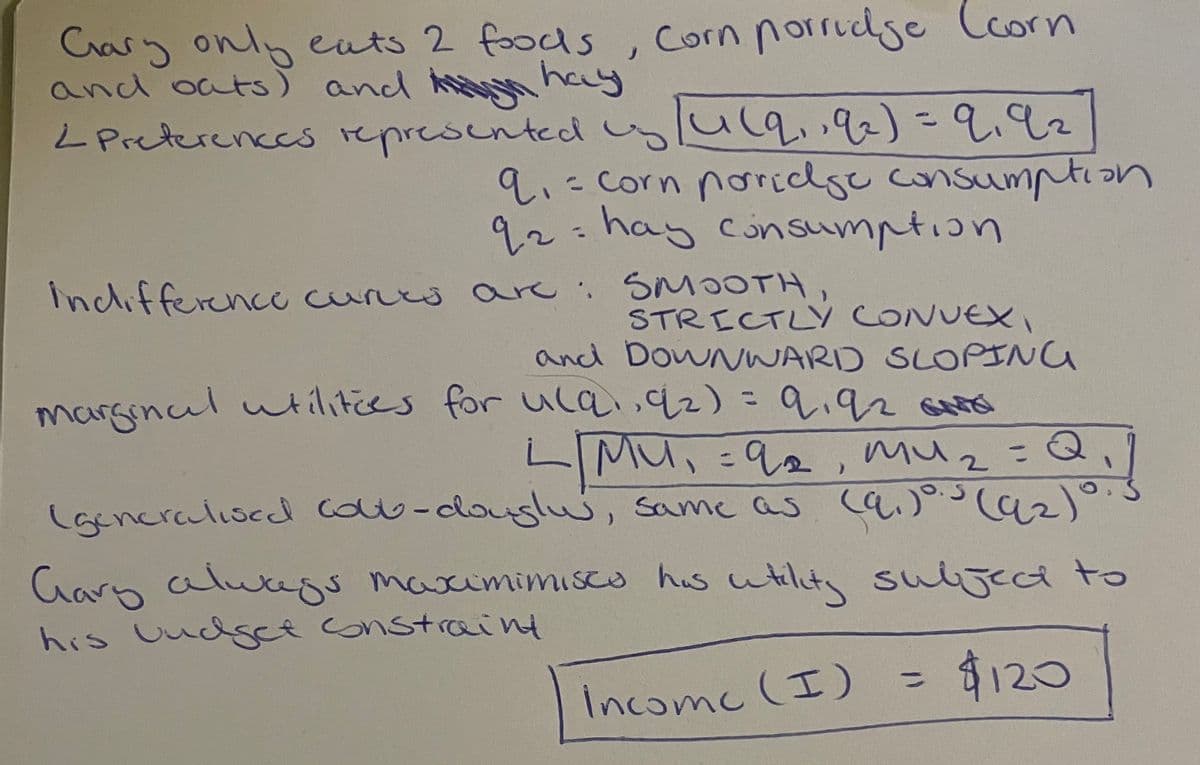 Gary only eats 2 foods, corn porridge (corn
and oats) and hay
L Preferences represented by u(q₁,q₂) = q₁q₂
q₁ = corn porridge consumption
q₂ = hay consumption
indifference curves are : SMOOTH,
STRICTLY CONVEX,
and DOWNWARD SLOPING
marginal utilities for u(q₁,q₂) = q₁q₂
L MU₁ = q₂ , MU₂ = Q₁
(generalised cobb-douglas, same as (q₁)^0.5 (q₂)^0.5
Gary always maximimises his utility subject to
his budget constraint
Income (I) = $120